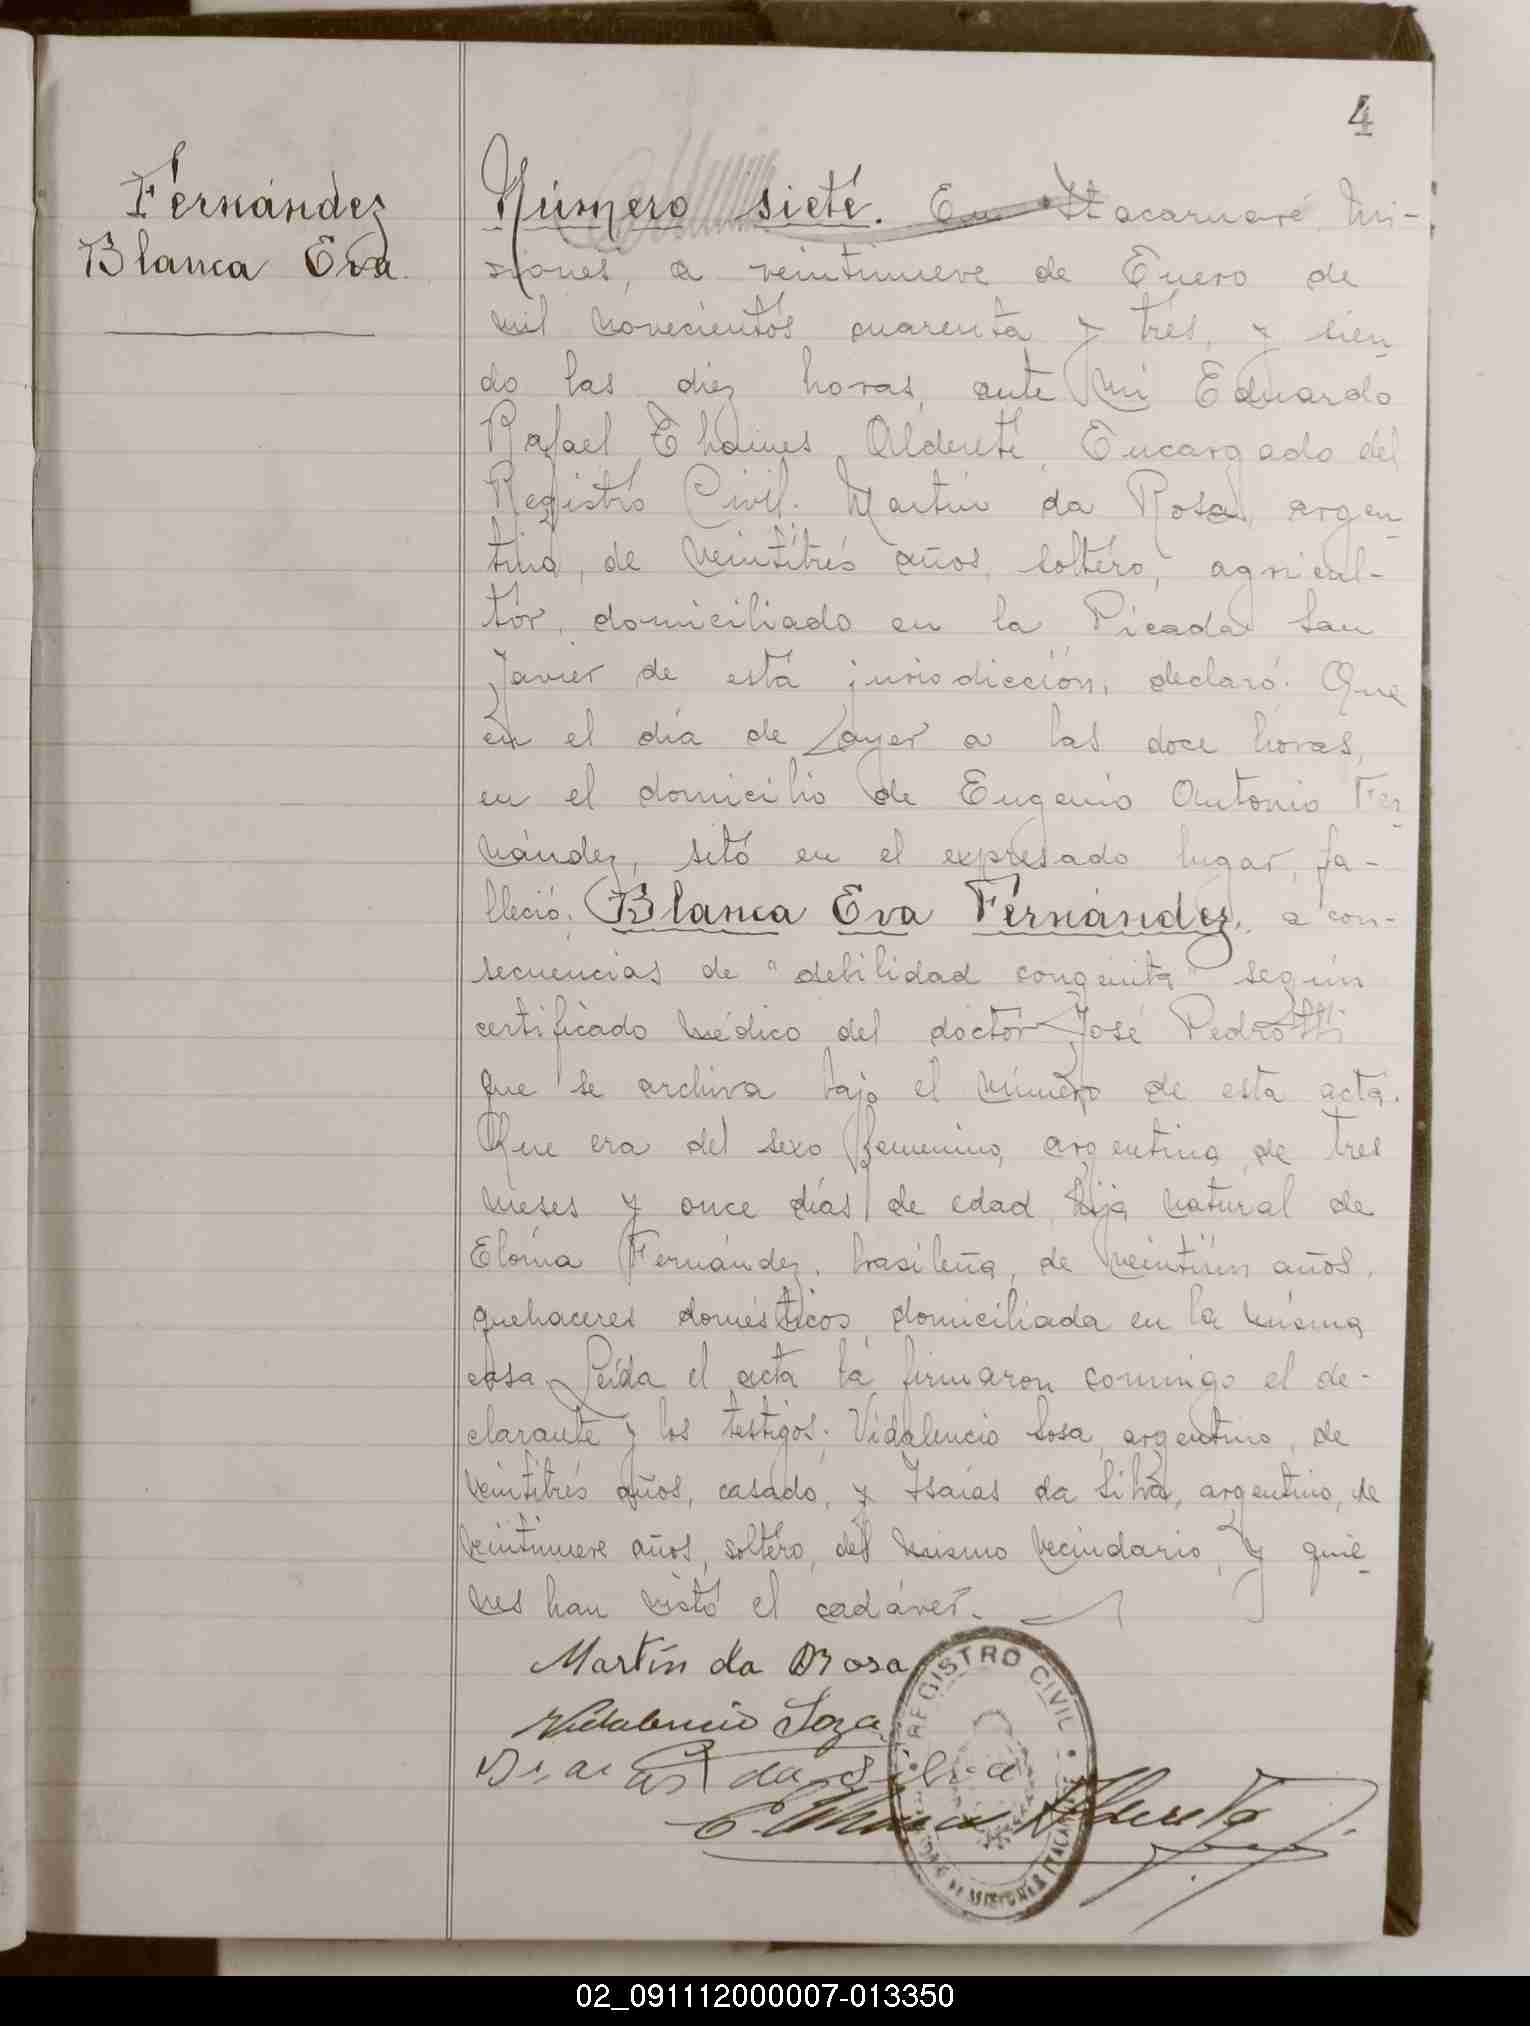 4
Fernández
Blanca Eva
Número siete. En Itacaruaré, Mi-
siones, a veintinueve de Enero de
mil novecientos cuarenta y tres, y sien
do las diez horas, ante mí Eduardo
Rafael Thames Alderete, Encargado del
Registro Civil. Martín da Rosa, argen
tino, de veintitrés años, soltero, agricul-
tor, domiciliado en la Picada San
Javier de está jurisdicción, declaró: Que
en el día de ayer a las doce horas,
en el domicilio de Eugenio Antonio Fer
nández, sitó en el expresado lugar, fa-
lleció, Blanca Eva Fernández, a con-
secuencias de "debilidad congénita" según
certificado médico del doctor José Pedrotti
que se archiva bajo el número de esta acta.
Que era del sexo femenino, argentina, de tres
meses y once días de edad, hija natural de
Elorna Fernández, brasileña, de veintiún años,
quehaceres domésticos, domiciliada en la misma
casa. Leída el acta la firmaron conmigo el de-
clarante y los testigos: Vidalencio Sosa, argentino, de
veintitrés años, casado, y Isaías da Silva, argentino, de
veintinueve años, soltero, del mismo vecindario, y quie
nes han visto el cadáver.-
Martín da Rosa
Vidalencio Soza
da Silva
REGISTRO CIVIL
02_091112000007-013350